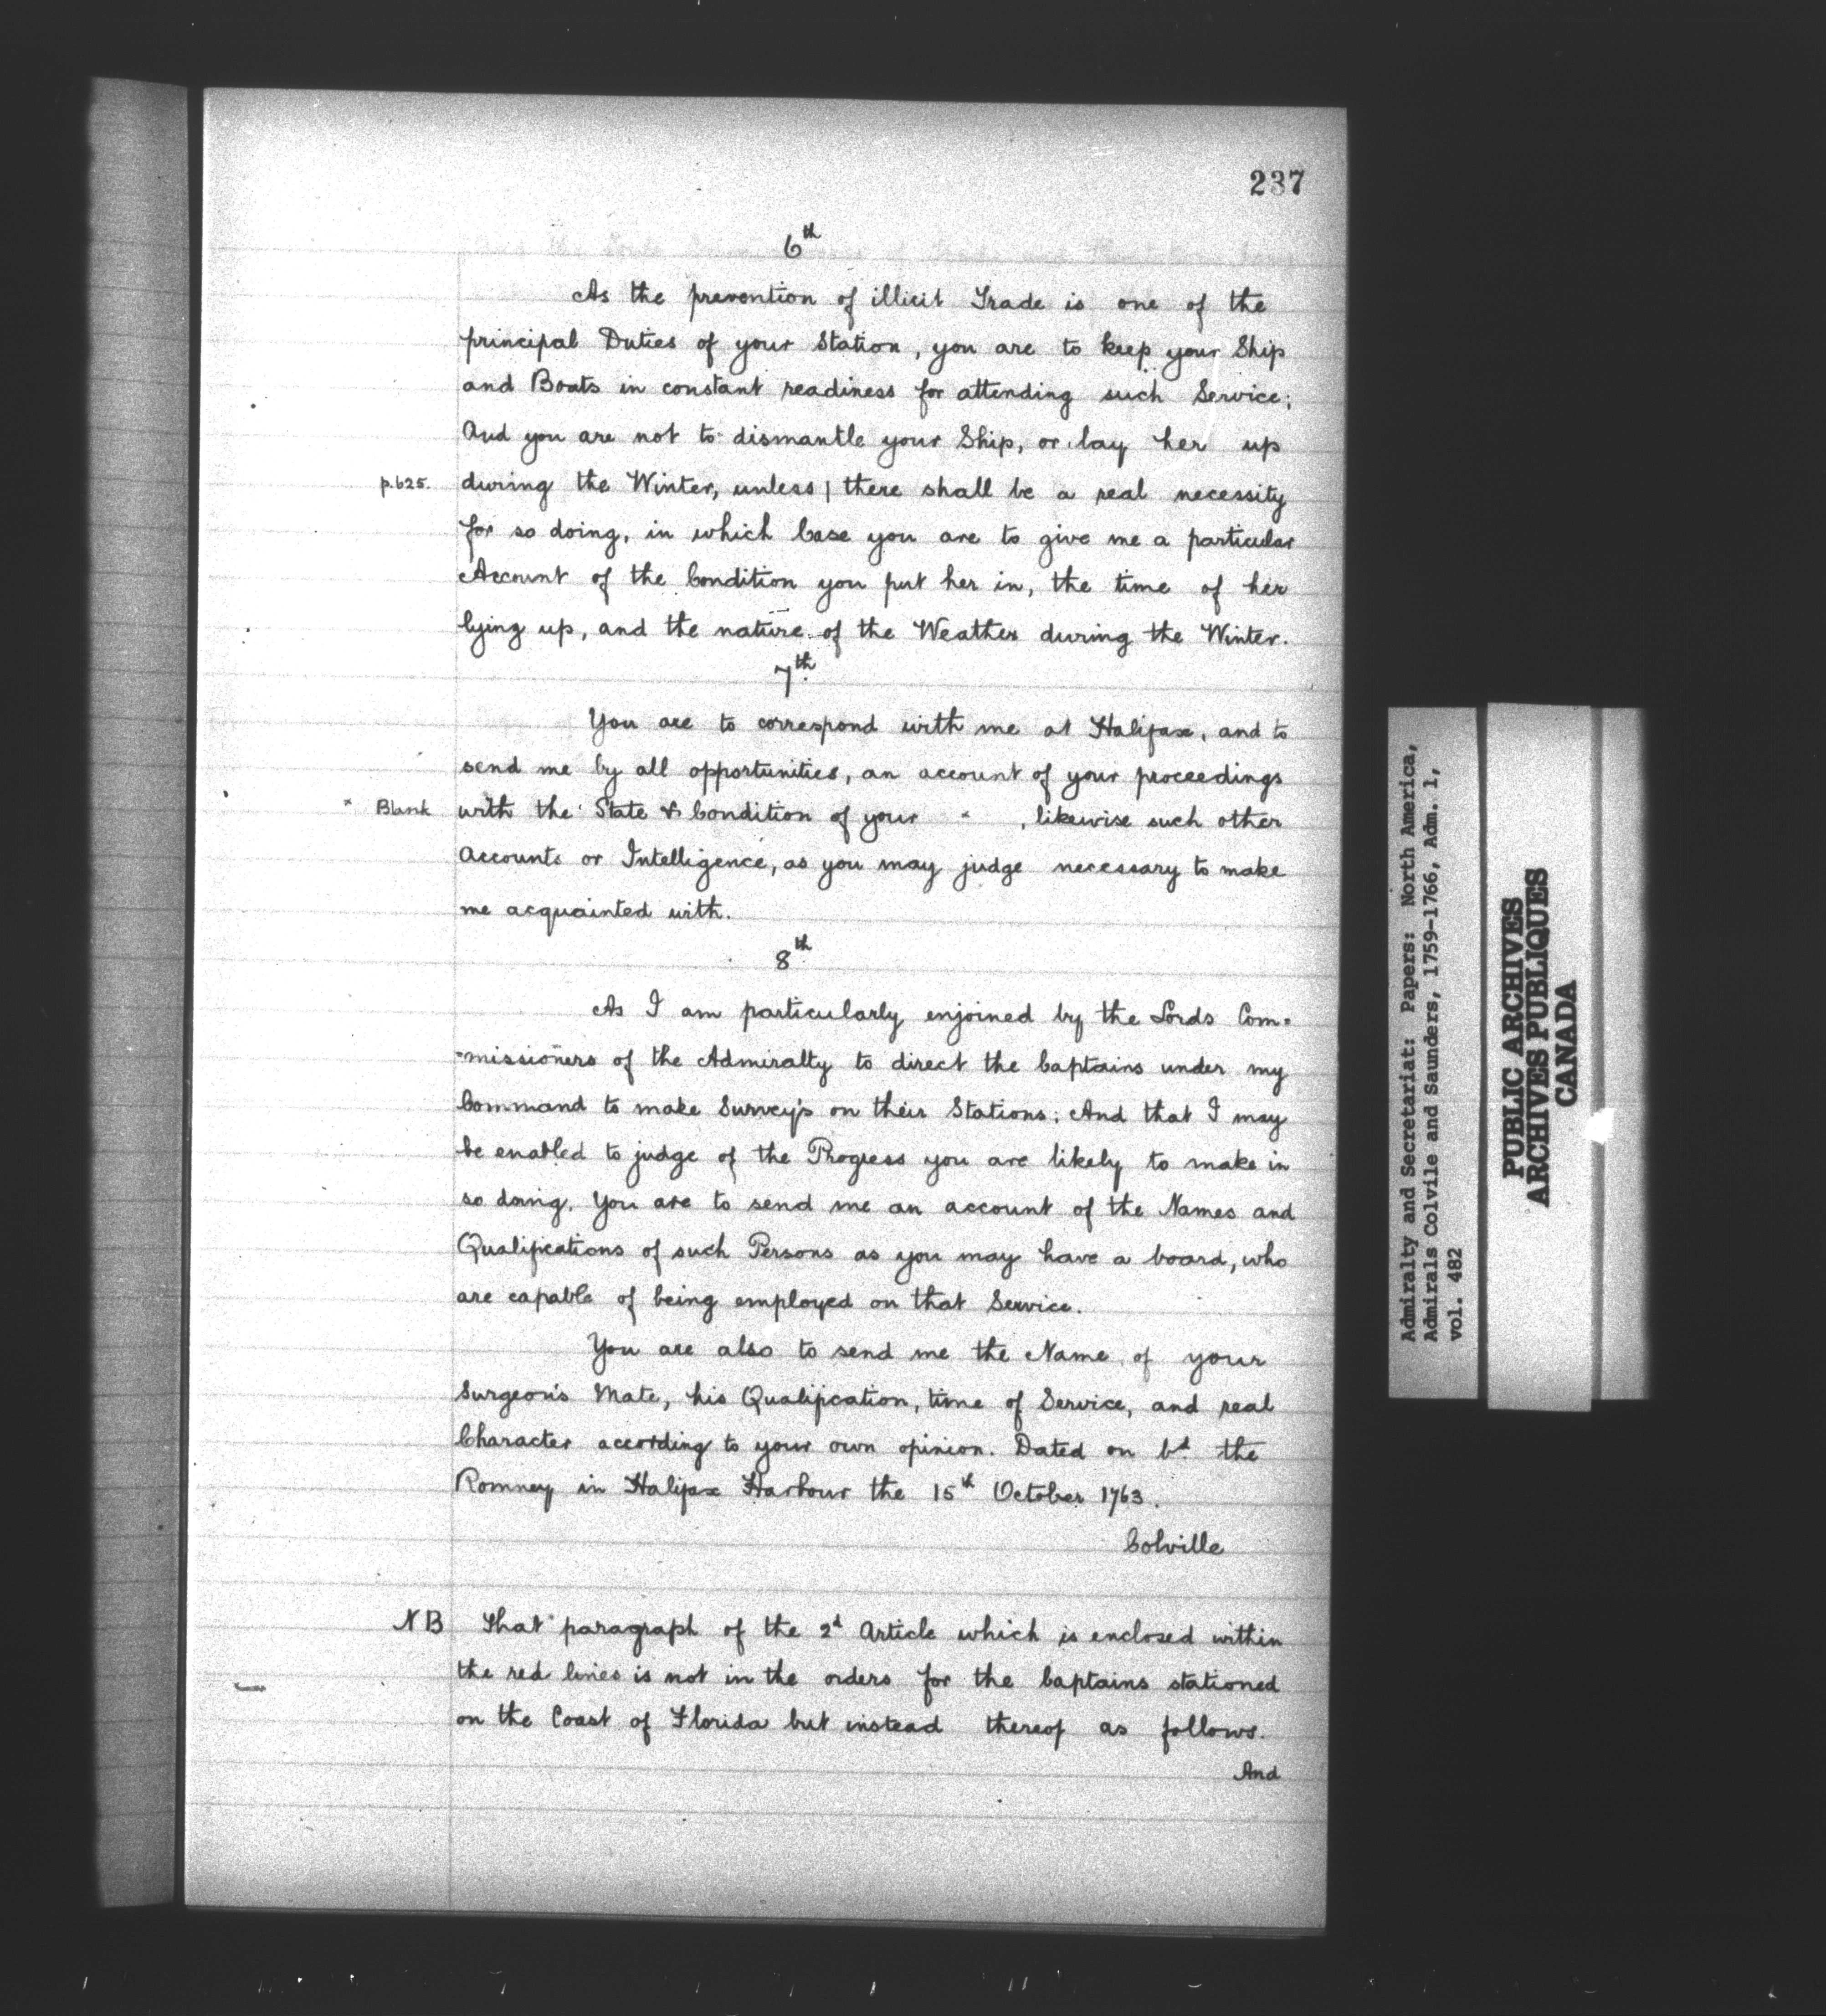 237
6th
As the prevention of illicit Trade is one of the
principal Duties of your Station, you are to keep your Ship
and Boats in constant readiness for attending such Service;
And you are not to dismantle your Ship, or lay her up
p.625. during the Winter, unless | there shall be a real necessity
for so doing, in which Case you are to give me a particular
Account of the Condition you put her in, the time of her
lying up, and the nature of the Weather during the Winter.
7th
You are to correspond with me at Halifax, and to
send me by all opportunities, an account of your proceedings
× Blank with the State & Condition of your × , likewise such other
Accounts or Intelligence, as you may judge necessary to make
me acquainted with.
8th
As I am particularly enjoined by the Lords Com=
=missioners of the Admiralty to direct the Captains under my
Command to make Survey's on their Stations; And that I may
be enabled to judge of the Progress you are likely to make in
so doing, You are to send me an account of the Names and
Qualifications of such Persons as you may have a board, who
are capable of being employed on that Service.
You are also to send me the Name of your
Surgeon's Mate, his Qualification, time of Service, and real
Character according to your own opinion. Dated on bd. the
Romney in Halifax Harbour the 15th October 1763.
Colville
NB That paragraph of the 2d Article which is enclosed within
the red lines is not in the orders for the Captains stationed
on the Coast of Florida but instead thereof as follows.
And
Admiralty and Secretariat: Papers: North America,
Admirals Colvile and Saunders, 1759-1766, Adm. 1,
vol. 482
PUBLIC ARCHIVES
ARCHIVES PUBLIQUES
CANADA